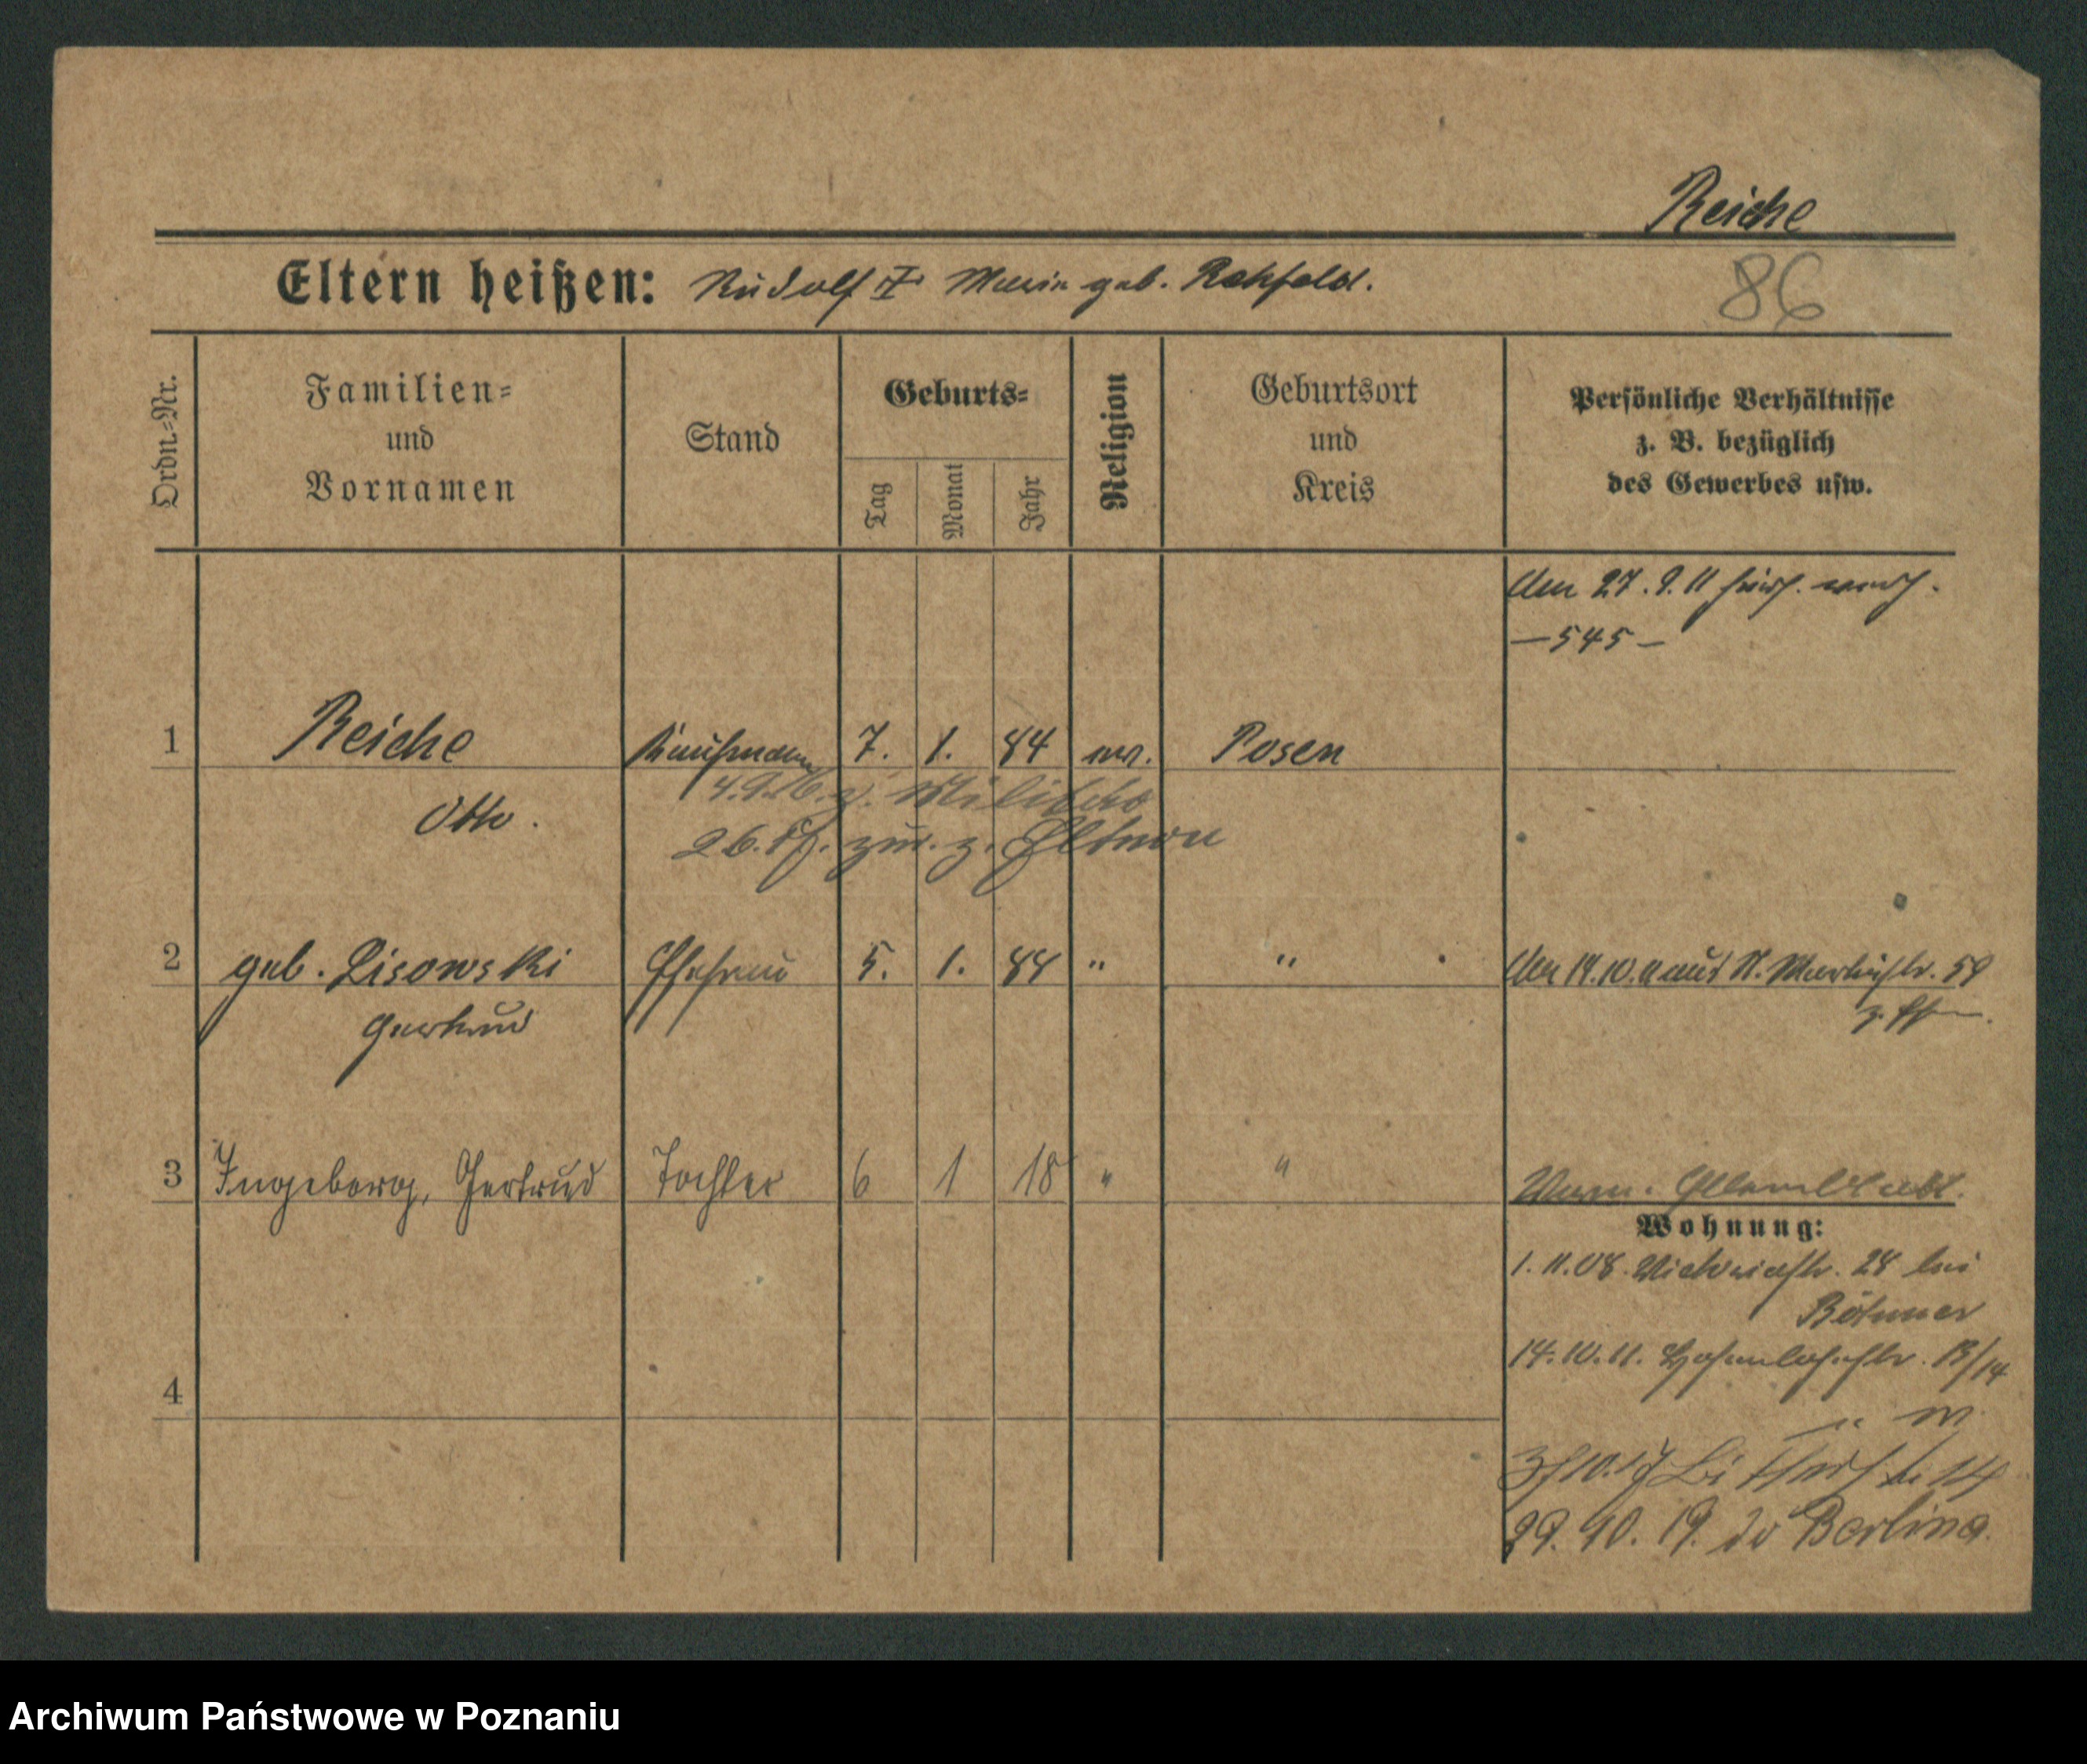 Reiche
Eltern heißen: Rudolf I. Marie geb. Rehfeld.
86
Ordn.=Nr.
Familien=
und
Vornamen
Stand
Geburts=
Tag
Monat
Jahr
Religion
Geburtsort
und
Kreis
Persönliche Verhältnisse
z. B. bezüglich
des Gewerbes usw.
Am 27. 9. 11
—545—
1 Reiche Kaufmann 7. 1. 84 ev. Posen
Otto.
z. Militär
26. zur. z. Eltern
2 geb. Lisowski Ehefrau 5. 1. 88 " "
Gertrud
Am 14. 10. 11 aus St. Martinstr. 59
3 Ingeborg, Gertrud Tochter 6 1 18 " "
Wohnung:
1. 11. 08. Victoriastr. 28 bei
Böhmer
14. 10. 11. Hohenlohestr. 13/14
4
14
29. 10. 19. Berlin
Archiwum Państwowe w Poznaniu